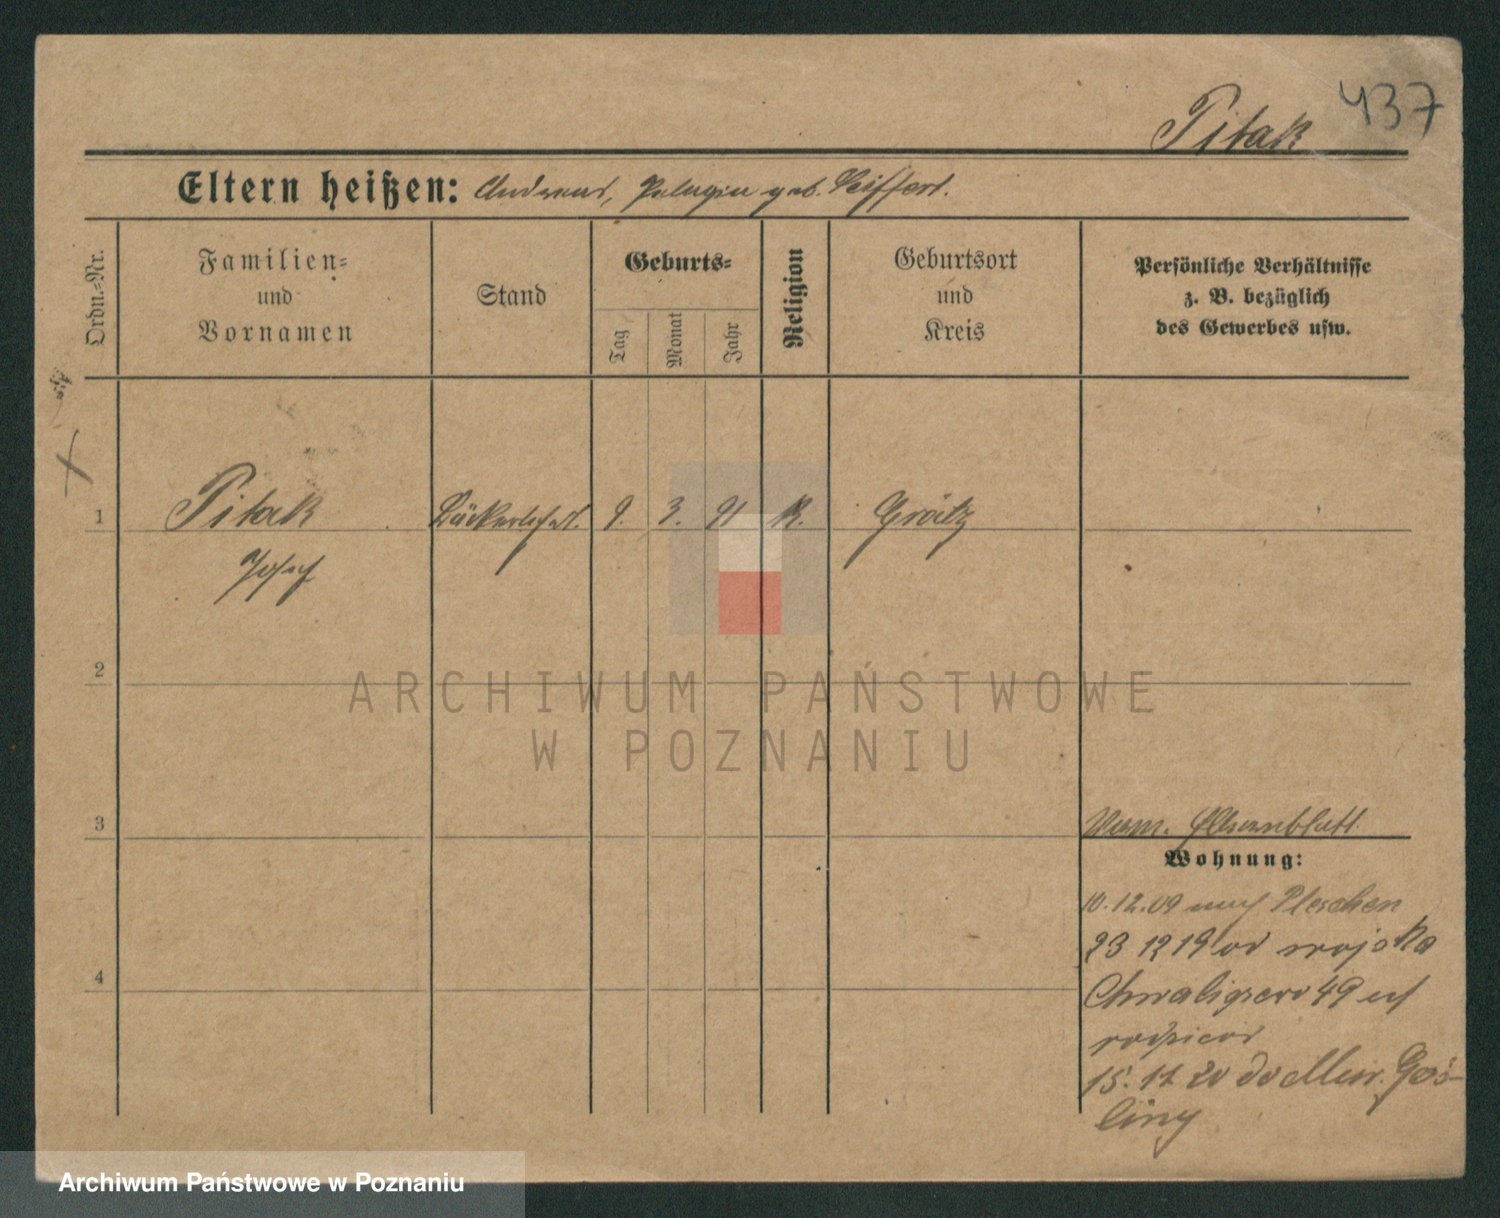 437
Pitak
Eltern heißen: Andreas, Pelagia geb. Seiffert.
Ordn.-Nr.
Familien-
und
Vornamen
Stand
Geburts-
Tag
Monat
Jahr
Religion
Geburtsort
und
Kreis
Persönliche Verhältnisse
z. B. bezüglich
des Gewerbes usw.
1 Pitak Bäckerlehrl. 9. 3. 91 K. Grätz
Josef
2
3
Elternblatt
Wohnung:
10.12.09 nach Pleschen
23 12 19 od wojska
Chwaliszewo 49 u
rodziców
15. 11 20 do Mur. Goś-
liny
4
ARCHIWUM PAŃSTWOWE
W POZNANIU
Archiwum Państwowe w Poznaniu